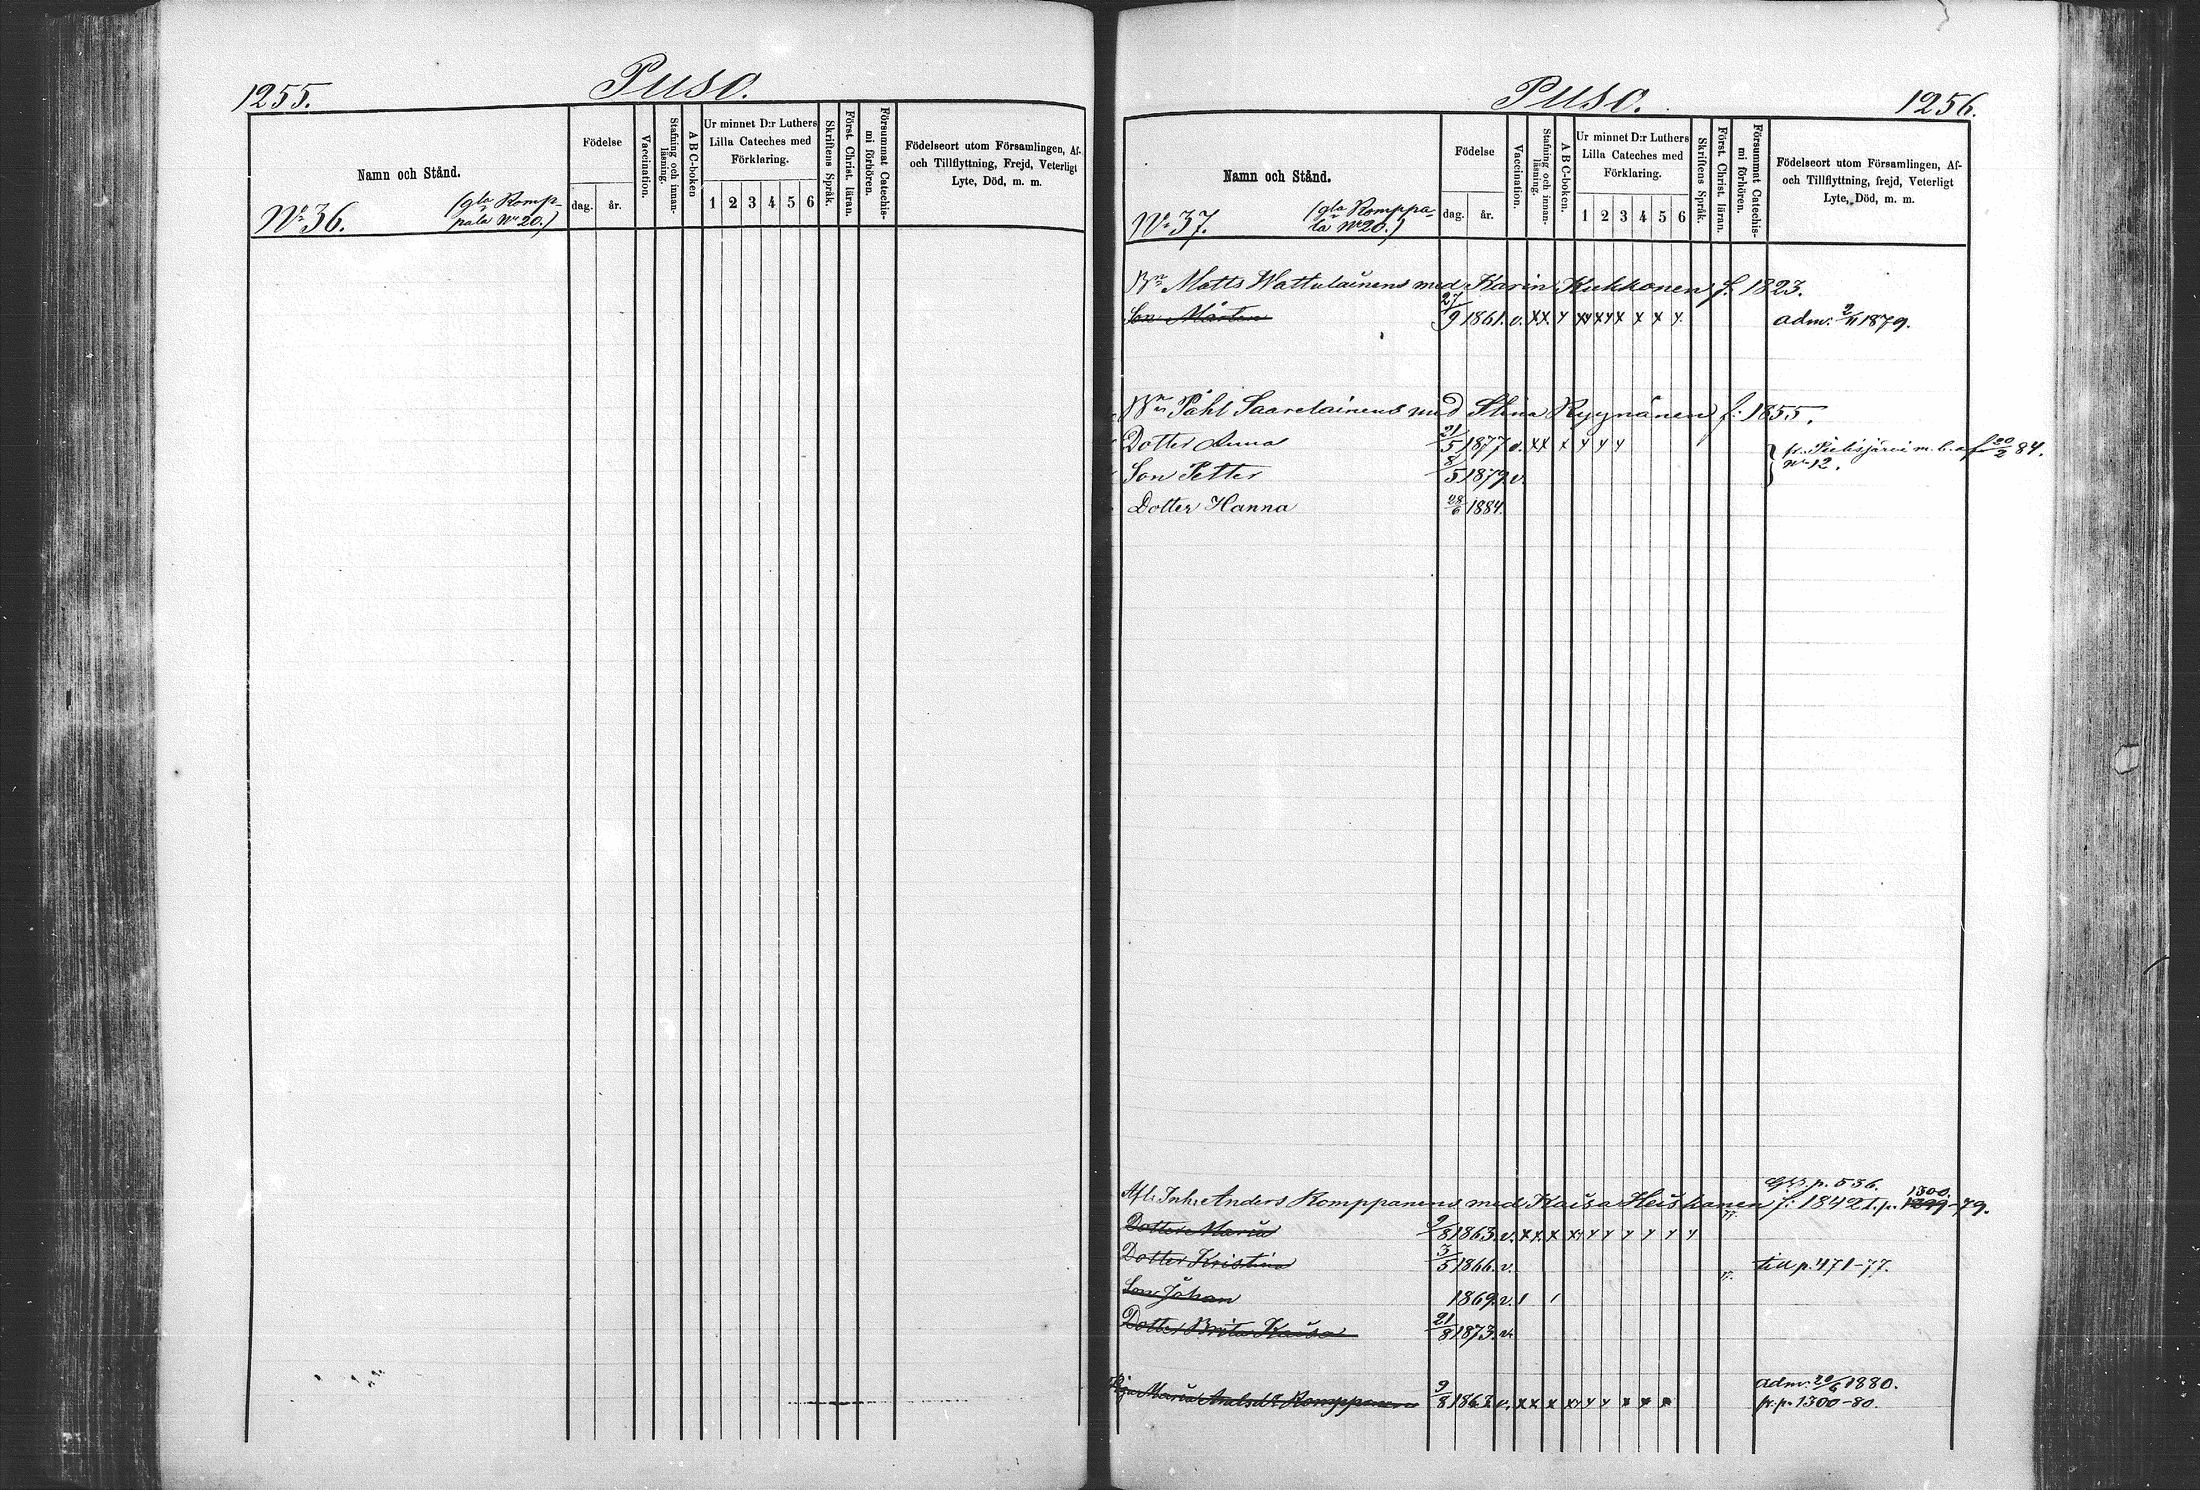 1255.
Puso.
Namn och Stånd.
Födelse
dag.
år.
Vaccination.
Stafning och innanläsning.
A B C-boken
Ur minnet D:r Luthers
Lilla Cateches med
Förklaring.
1 2 3 4 5 6
Skriftens Språk.
Först. Christ. läran.
Försummat Catechismi förhören.
Födelseort utom Församlingen, Af-
och Tillflyttning, Frejd, Veterligt
Lyte, Död, m. m.
No 36.
(gla Romp-
pala No 20.)
Puso.
1256.
Namn och Stånd.
Födelse
dag.
år.
Vaccination.
Stafning och innanläsning.
A B C-boken.
Ur minnet D:r Luthers
Lilla Cateches med
Förklaring.
1 2 3 4 5 6
Skriftens Språk.
Först. Christ. läran.
Försummat Catechismi förhören.
Födelseort utom Församlingen, Af-
och Tillflyttning, frejd, Veterligt
Lyte, Död, m. m.
No 37.
(gla Romppa-
la No 20.)
Bn Matts Wattulainens med Karin Kukkonen f. 1823.
Son Mårten 27/9 1861. v. xx. y xx x y x x x y. adm. 2/11 1879.
Bn Påhl Saarelainens med Stina Ryynänen f: 1855.
Dotter Anna 21/5 1877 v. xx x y y y fr. Pielisjärvi m. b. af 20/2 84.
Son Petter 8/5 1879 v. No 12.
Dotter Hanna 28/6 1884.
gls. p. 536.
Afl. Inh: Anders Romppanens med Kaisa Heiskanen f: 1842 t. p. 1299 1300.-79.
Dotter Maria 9/8 1863. v. xx. x xy y y y y y y
Dotter Kristina 3/5 1866. v. till p. 471-77.
Son Johan 1869. v. 1 1
Dotter Brita Kaisa 21/8 1873. v.
adm. 20/6 1880.
Maria Andsdr Romppanen 9/8 1862 v. xx x xy y y x x x fr. p. 1300-80.